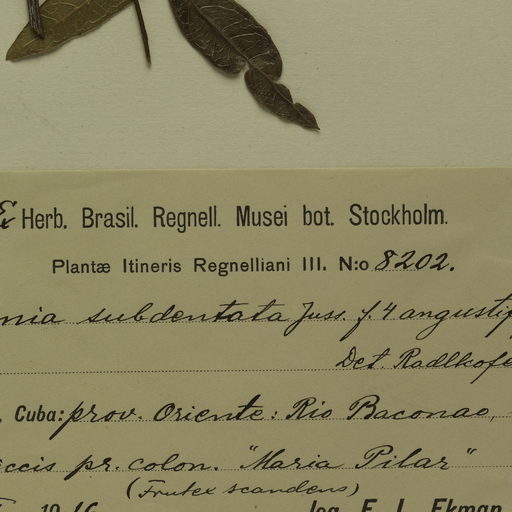 Ex Herb. Brasil. Regnell. Musei bot. Stockholm.
Plantæ Itineris Regnelliani III. N:o 8202.
nia subdentata Juss. f. 4 angustif
Det. Radlkofe
Cuba: prov. Oriente: Rio Baconao,
ccis pr. colon. "Maria Pilar"
(Frutex scandens)
leg. E. L. Ekman